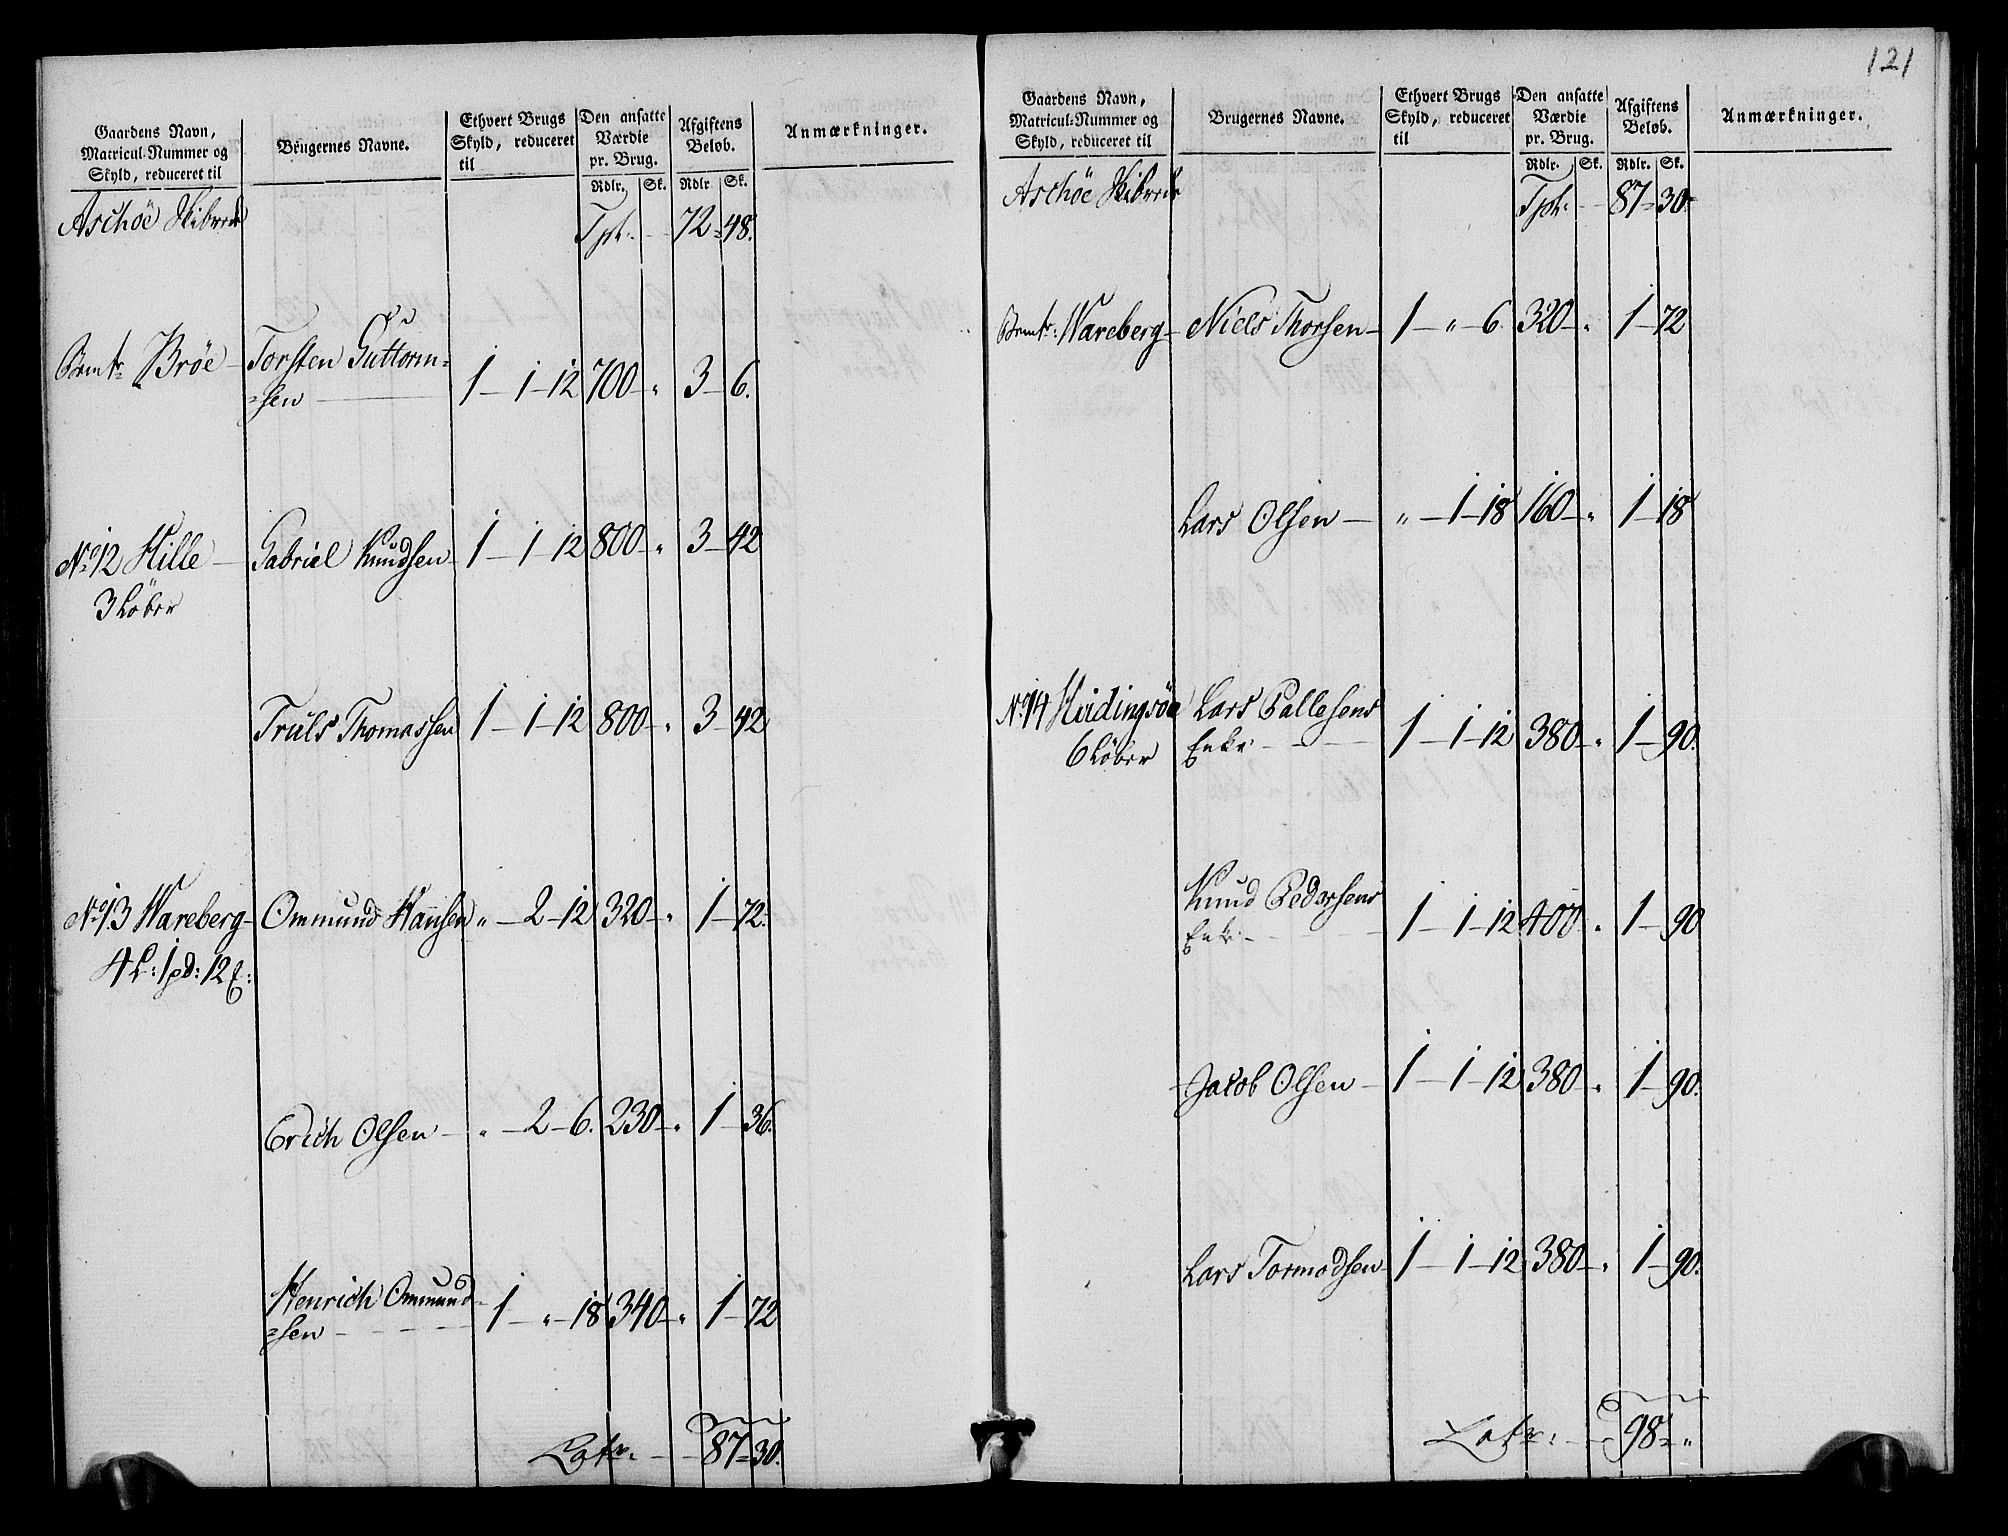 Gaardens Navn,
Matricul-Nummer og
Skyld, reduceret til
Brugernes Navne.
Ethvert Brugs
Skyld, reduceret
til
Den ansatte
Værdie
pr. Brug.
Afgiftens
Beløb.
Anmærkninger.
Rdlr. Sk. Rdlr Sk.
Aschöe Skibrede Tpt. 72 = 48.
Bemte Bröe Torsten Guttorm=
=sen 1 – 1 – 12 700 – " 3 – 6.
No 12 Hille Gabriel Knudsen 1 – 1 – 12 800 – " 3 – 42
3 Löber
Truls Thomassen 1 – 1 – 12 800 – " 3 – 42
No 13 Wareberg Ommund Hansen " – 2 – 12 320 – " 1 – 72.
4 L: 1 pd: 12
Erich Olsen " – 2 – 6. 230 – " 1 – 36.
Henrich Ommund=
=sen 1 – " – 18 340 – " 1 – 72
Latr: 87 = 30.
121
Gaardens Navn,
Matricul-Nummer og
Skyld, reduceret til
Brugernes Navne.
Ethvert Brugs
Skyld, reduceret
til
Den ansatte
Værdie
pr. Brug.
Afgiftens
Beløb.
Anmærkninger.
Rdlr. Sk. Rdlr. Sk.
Aschöe Skibrede Tpt. 87 = 30.
Bemte: Wareberg Niels Thorsen 1 – " – 6. 320 – " 1 – 72
Lars Olsen " – 1 – 18 160 – " 1 – 18
No 14 Hvidingsöe Lars Pallesens
6 Löber Enke 1 – 1 – 12 380 – " 1 – 90.
Knud Pedersens
Enke 1 – 1 – 12 400 – " 1 – 90
Jacob Olsen 1 – 1 – 12 380 – " 1 – 90.
Lars Tormodsen 1 – 1 – 12 380 – " 1 – 90.
Latr: 98 = "